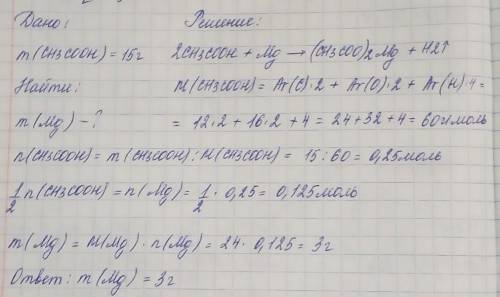 Дано: Решение:
m(CH3COOH) = 15г 2CH3COOH + Mg → (CH3COO)2Mg + H2↑
Найти: M(CH3COOH) = Ar(C)·2 + Ar(O)·2 + Ar(H)·4 =
m(Mg) - ? = 12·2 + 16·2 + 4 = 24+32+4 = 60г/моль
n(CH3COOH) = m(CH3COOH) : M(CH3COOH) = 15 : 60 = 0,25моль
1/2 n(CH3COOH) = n(Mg) = 1/2 · 0,25 = 0,125моль
m(Mg) = M(Mg) · n(Mg) = 24 · 0,125 = 3г
Ответ: m(Mg) = 3г